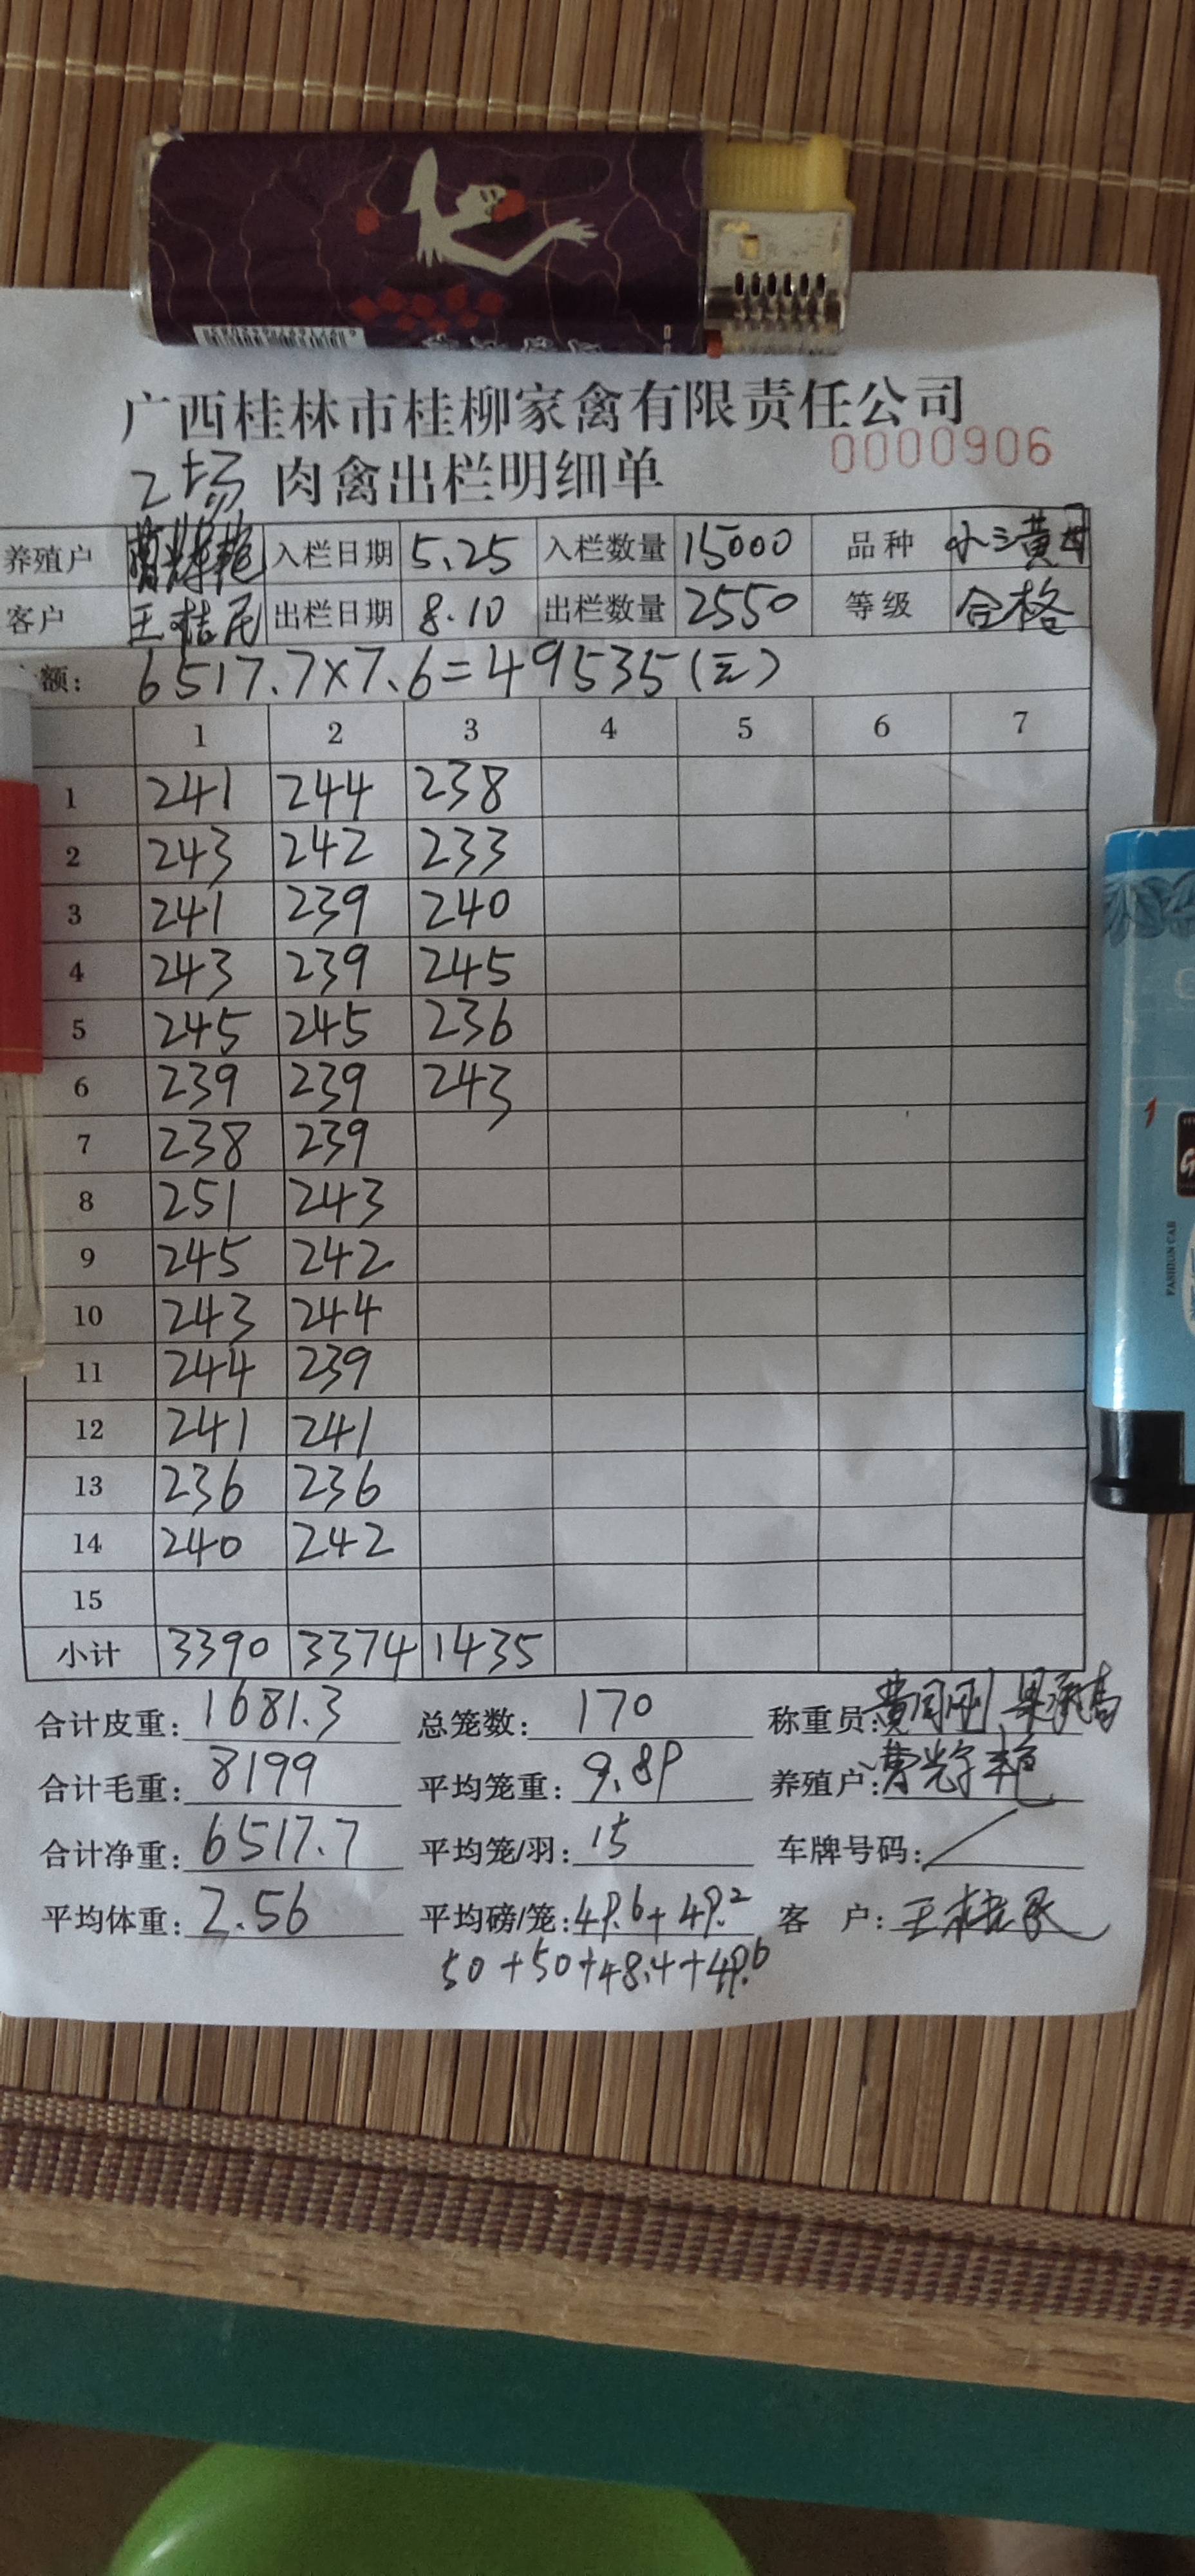 广西桂林市桂柳家禽有限责任公司
0000906
2场 肉禽出栏明细单
养殖户 入栏日期 5.25 入栏数量 15000 品种 小三黄母
客户 出栏日期 8.10 出栏数量 2550 等级 合格
额: 6517.7×7.6=49535(元)
1 2 3 4 5 6 7
1 241 244 238
2 243 242 233
3 241 239 240
4 243 239 245
5 245 245 236
6 239 239 243
7 238 239
8 251 243
9 245 242
10 243 244
11 244 239
12 241 241
13 236 236
14 240 242
15
小计 3390 3374 1435
合计皮重: 1681.3 总笼数: 170 称重员:
合计毛重: 8199 平均笼重: 9.89 养殖户:
合计净重: 6517.7 平均笼/羽: 15 车牌号码: /
平均体重: 2.56 平均磅/笼: 49.6+49.2 客 户:
50+50+48.4+49.6
FASHION CAB